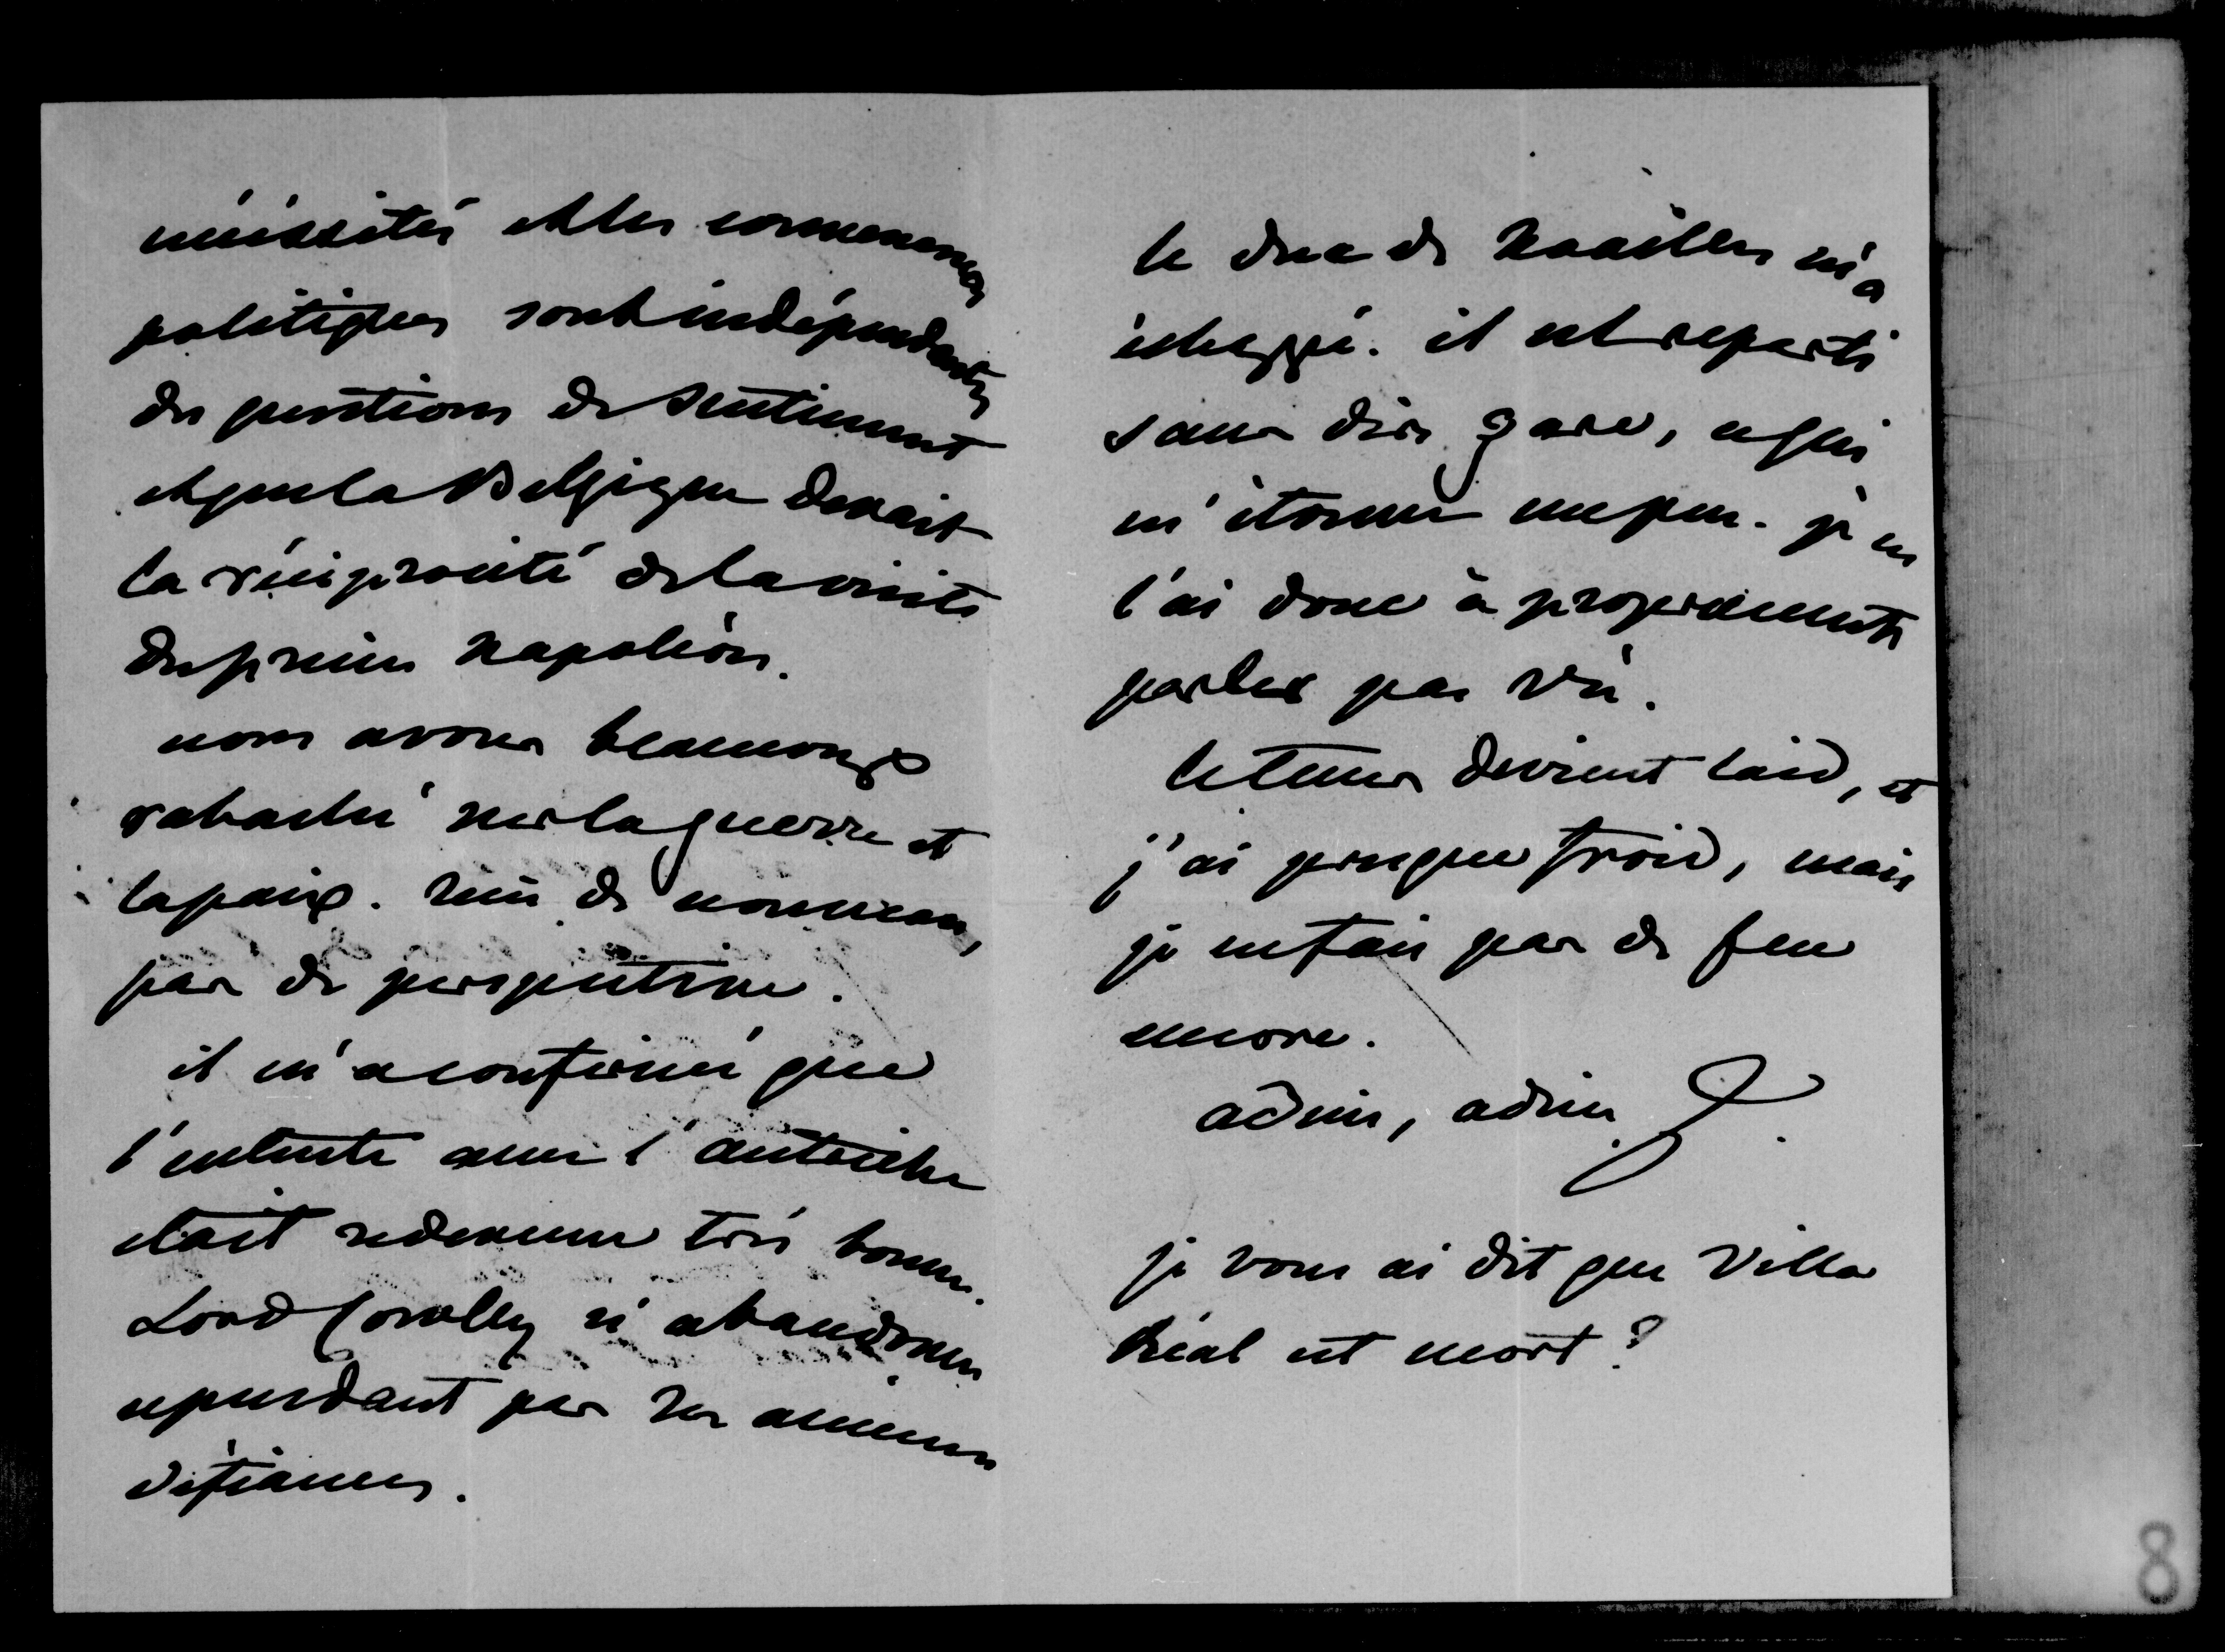 nécessités et les convenances
politiques sont indépendantes
des questions de sentiment
et que la Belgique devait
la réciprocité de la visite
du prince Napoléon.
nous avons beaucoup
rabaché sur la guerre et
la paix. rien de nouveau,
pas de perspective.
il m'a confirmé que
l'entente avec l'autriche
était redevenue très bonne.
Lord Cowley n'abandonne
cependant pas ses anciennes
défiances.
le duc de Noailles m'a
échappé. il est reparti
sans dire gare, ce qui
m'étonne un peu. je ne
l'ai donc à proprement
parler pas vu.
le tems devient laid, et
j'ai presque froid, mais
je ne fais pas de feu
encore.
adieu, adieu
je vous ai dit que Villa
Réal est mort?
8